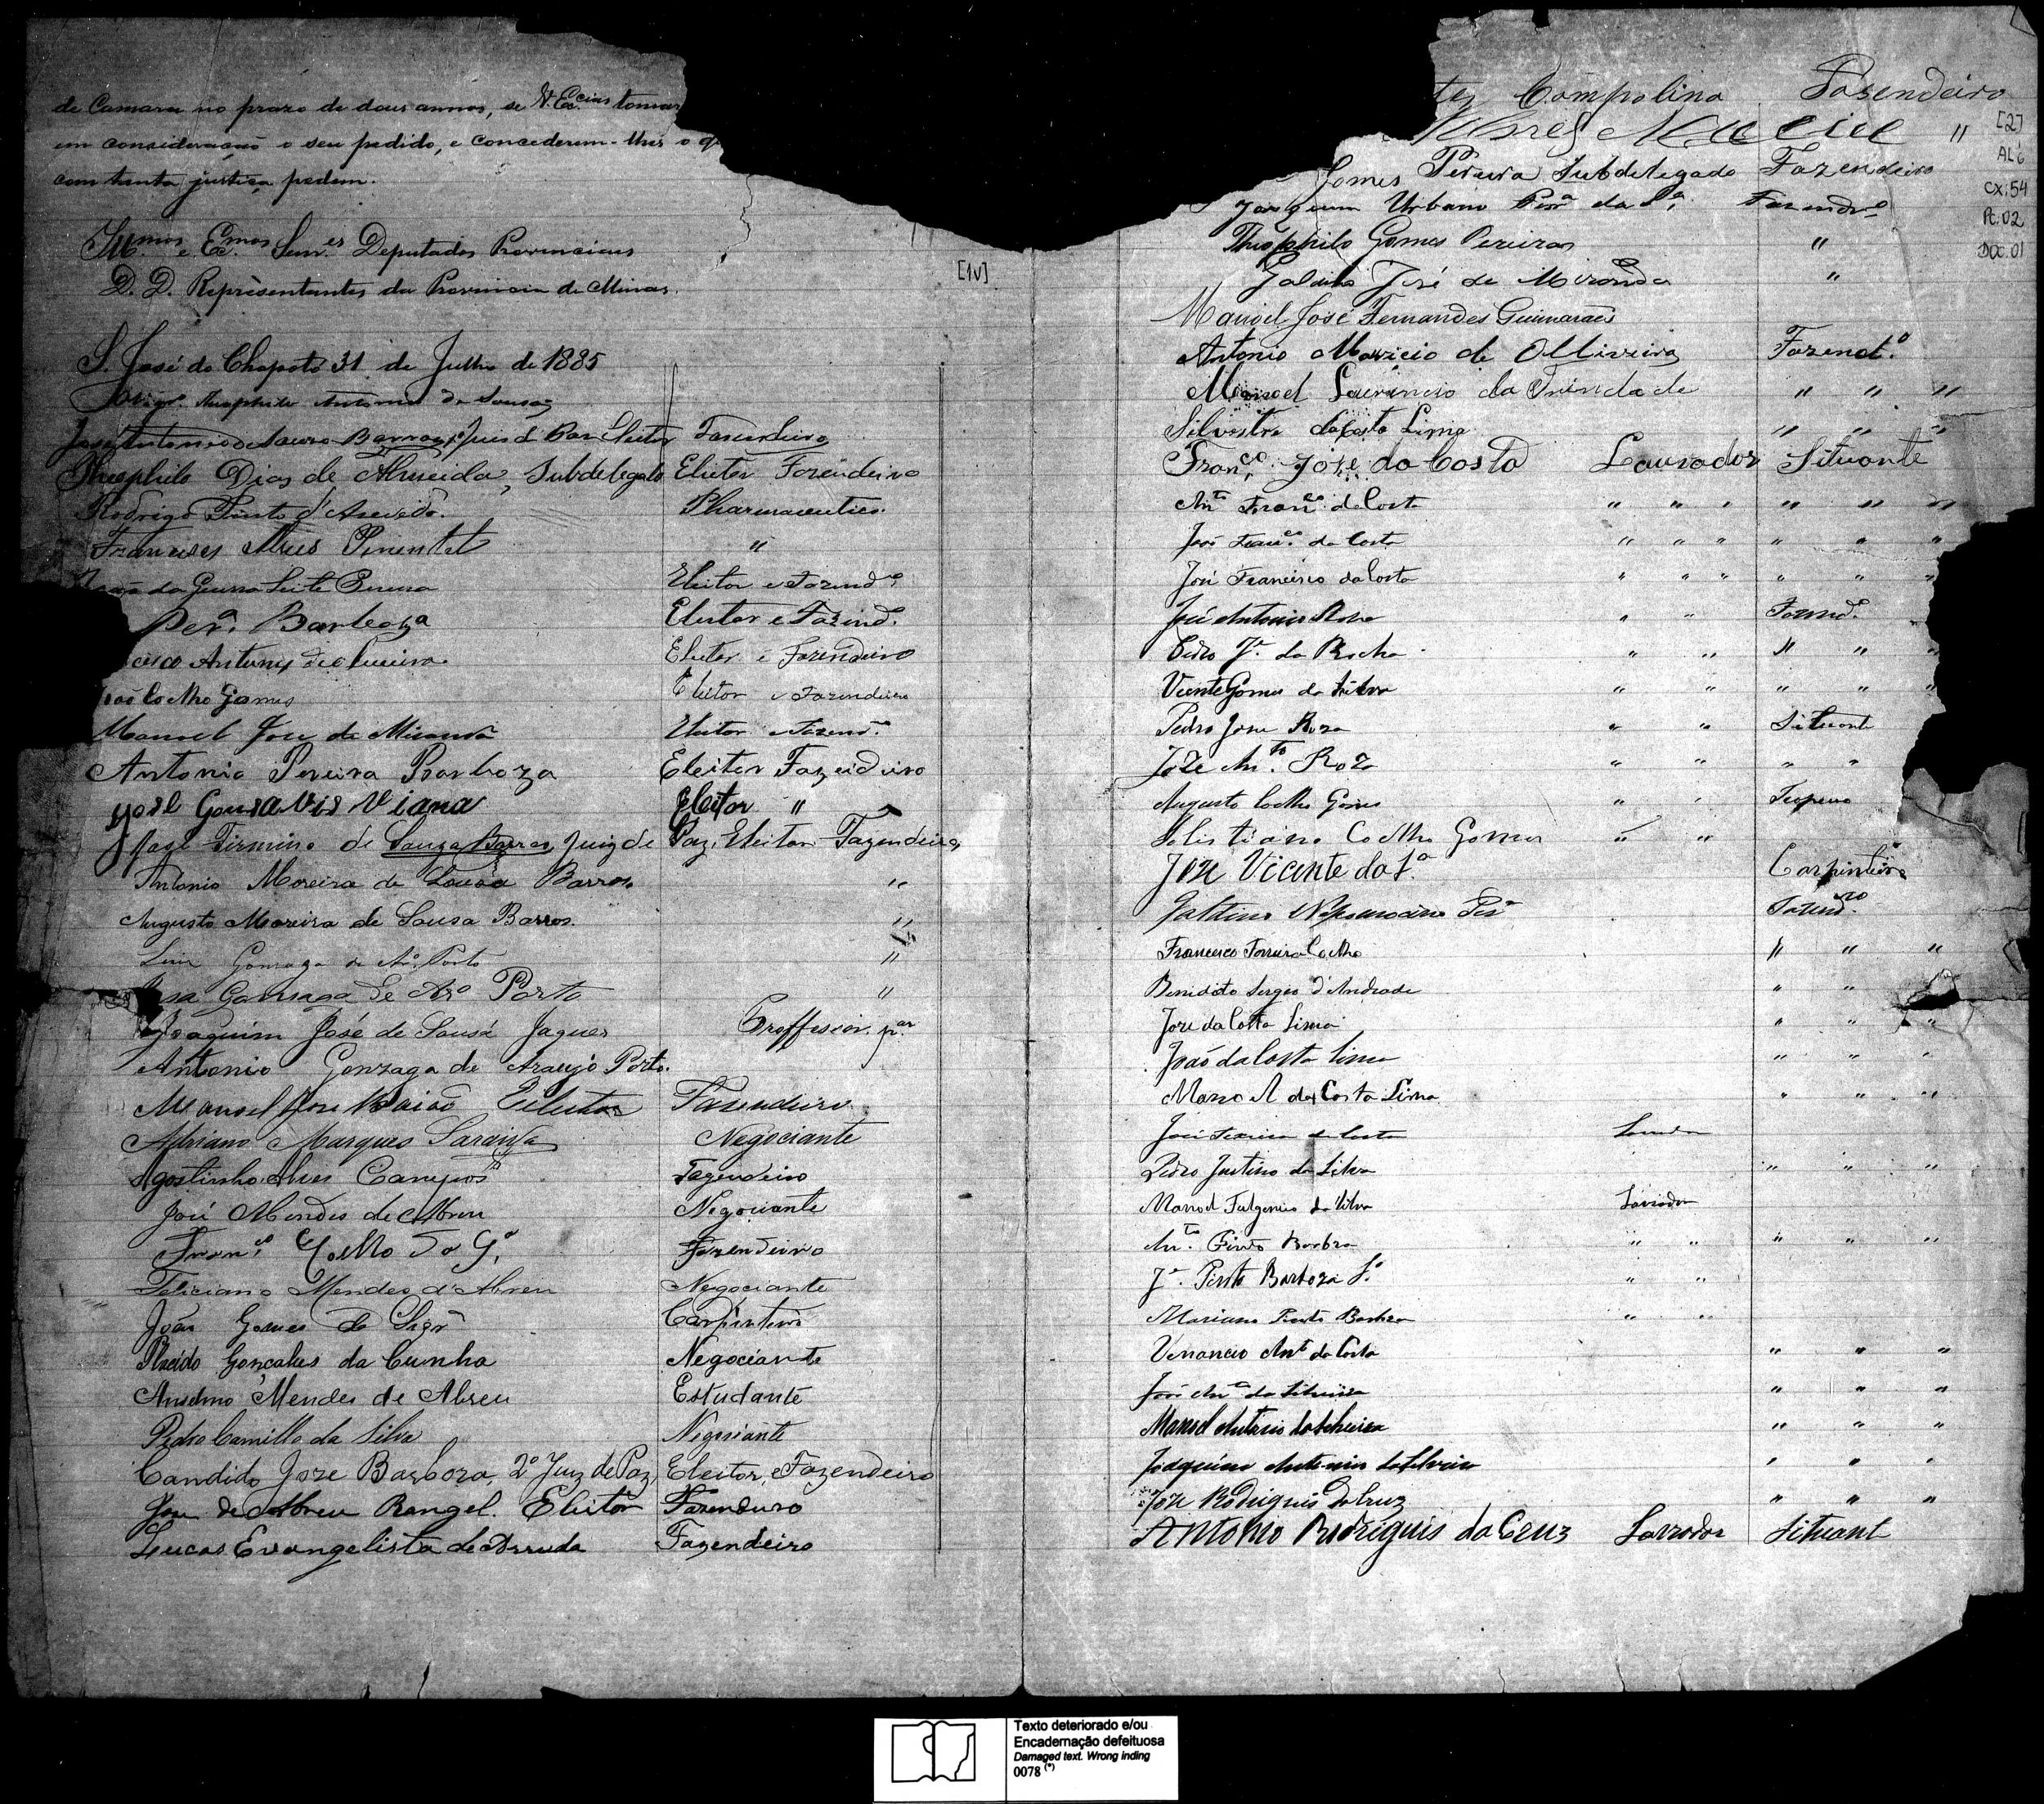 de Camara no prazo de dous annos, se V. Ex.cias tomar
em consideração o seu pedido, e concederem-lhes o q
com tanta justiça pedem.
Ill.mos e Ex.mos Senr.es Deputados Provinciaes
D. D. Representantes da Provincia de Minas.
[1V]
S. José do Chopotó 31 de Julho de 1885
Theophilo Antonio de Sousa
José Antonio de Souza Barros, Juis de Paz Eleitor Fasendeiro
Theophilo Dias de Almeida, Subdelegado Elietor Fazendeiro
Rodrigo Pinto d'Azevedo. Pharmaceutico.
Francisco Alves Pimentel "
da Guerra Leite Eleitor e Fazend.o
Per.a Barboza Eleitor e Fazend.
Antunes de Oliveira Eleitor e Fazendeiro
Coelho Gomes Eleitor e Fazendeiro
Manoel Jose de Miranda Eleitor e Fazend.ro
Antonio Pereira Barboza Eleitor Fazendeiro
Jose Gonsalvis Viana Eleitor "
José Firmino de Souza Barros, Juiz de Paz, Eleitor Fazendeiro
Antonio Moreira de Souza Barros "
Augusto Moreira de Sousa Barros. "
Luiz Gonzaga de Ar.o Porto "
Gonzaga de Ar.o Porto "
Joaquim José de Sousa Jaques Proffessor p.ar
Antonio Gonzaga de Araujo Porto.
Manoel Jose Eleitor Fazendeiro
Adriano Marques Saraiva Negociante
Agostinho Alves Campos Fazendeiro
José Mendes de Abreu Negociante
Fran.co Coelho Fazendeiro
Feliciano Mendes d'Abreu Negociante
João Gomes de Carpinteiro
Placido Gonçalves da Cunha Negociante
Anselmo Mendes de Abreu Estudante
Pedro Camillo da Silva Negociante
Candido Jose Barboza, 2º Juiz de Paz, Eleitor, e Fazendeiro
Jose de Abreu Rangel. Eleitor Fazendeiro
Lucas Evangelista de Arruda Fazendeiro
Campolino Fasendeiro
Maciel "
[2]
AL 6
CX: 54
Pc. 02
DOC. 01
Gomes Pereira Subdelegado Fazendeiro
Joaquim Urbano Per.a da S.a Fazendr.o
Theophilo Gomes Pereira "
José de Miranda "
Manoel José Fernandes Guimarães
Antonio Mauricio de Olliveira Fazend.o
Manoel Lourencio da Trindade " " "
Silvestre da Costa Lima " " "
Fran.co Józe da Costa Lavrador Situante
An.to Fran.co da Costa " " " " " "
José Fran.co da Costa " " " " " "
José Francisco da Costa " " " " " "
José Antonio Rosa " " Fazend.o
Pedro J.e da Rocha " " " " "
Vicente Gomes da Silva " " " " "
Pedro Jose Roza " " Situant
Joze An.to Roza " " " "
Augusto Coelho Gomes " "
Coelho Gomes " "
Joze Vicente da S.a Carpinteiro
Galdino Nepomoceno Per.a Fazend.ro
Francisco Ferreira Coelho " " "
Benidito Sergio d'Andrade " "
Joze da Costa Lima " " "
João da Costa Lima " " "
Manoel da Costa Lima " " "
José da Costa Lavrador
Pedro Justino da Silva " " "
Manoel Fulgencio da Silva Lavrador
An.to Pinto Barboza " " " " "
J.e Pinto Barboza S.o " "
Mariano Pinto Barboza " "
Venancio An.to da Costa " " "
José An.to da Silveira " " "
Manoel Antonio da Silveira " " "
Joaquim Antonio da Silveira " " "
Joze Rodrigues da Cruz " " "
Antonio Rodriguis da Cruz Lavrador Situant
Texto deteriorado e/ou
Encadernação defeituosa
Damaged text. Wrong inding
0078 (*)